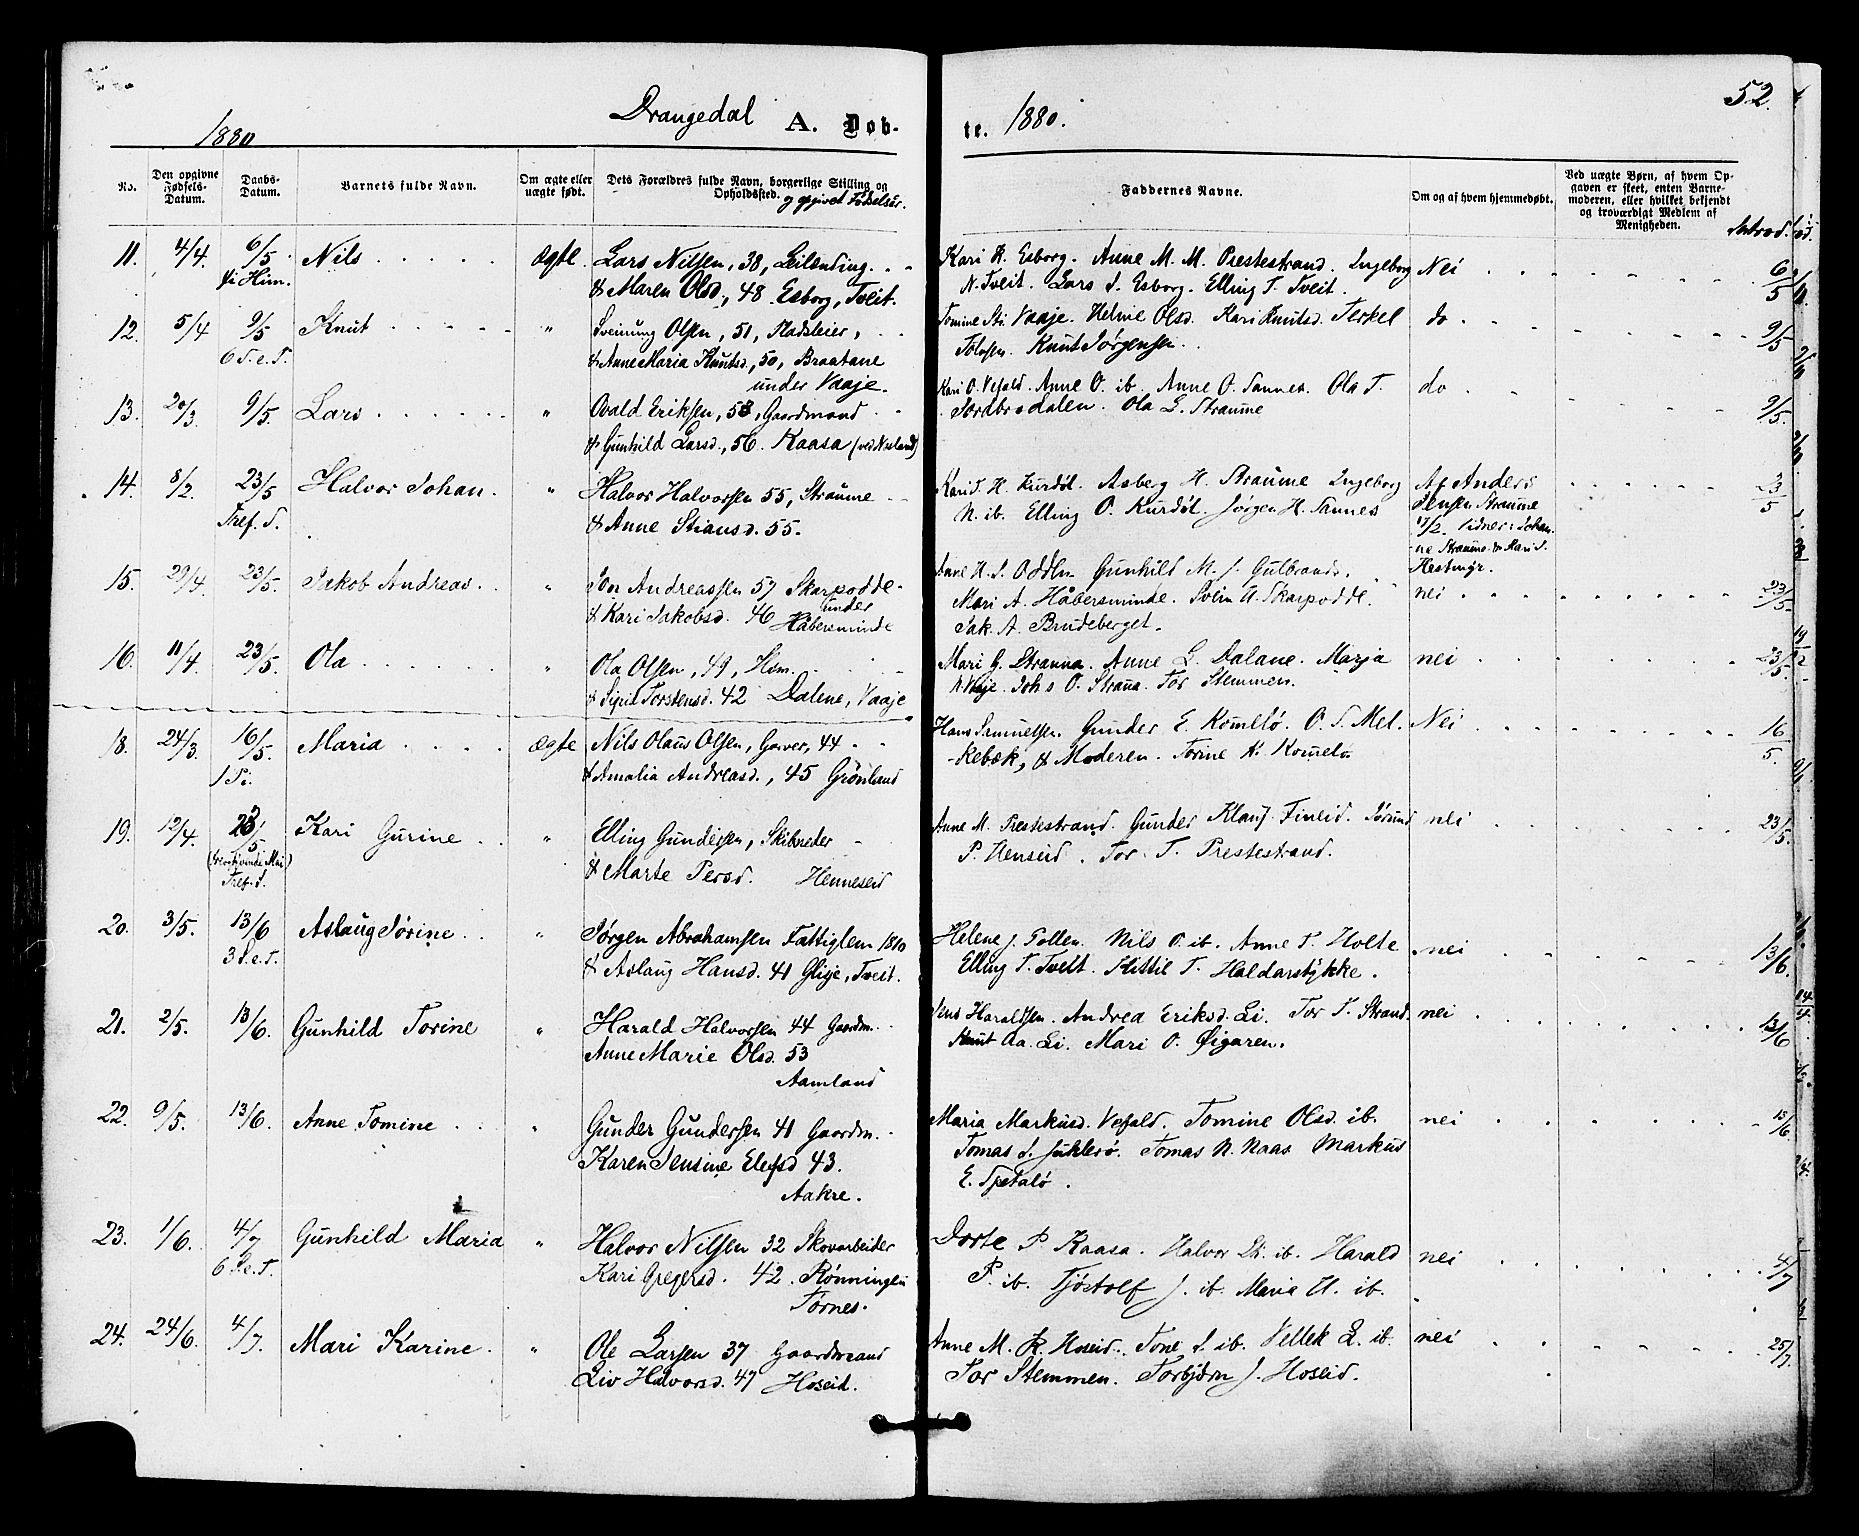 Drangedal
1880
A. Døb-
No.
Den opgivne Fødsels-Datum.
Daabs-Datum.
Barnets fulde Navn.
Om ægte eller uægte født.
Dets Forældres fulde Navn, borgerlige Stilling og Opholdssted. og opgivet Fødselsår.
11. 4/4. 6/5 Nils ægte Lars Nilsen, 38, Leilending
Kr. Him. & Maren Olsd., 48. Esborg, Tveit.
12. 5/4 9/5 Knut " Sveinung Olsen, 51, Pladsleier,
6 S. e. P. & Anne Maria Knutsd., 50, Braatane
under Vaaje.
13. 20/3. 9/5. Lars " Ovald Eriksen, 53, Gaardmand
& Gunhild Larsd., 56. Kaasa (ved Neeland)
14. 8/2. 23/5 Halvor Johan. " Halvor Halvorsen 55, Straume
Tref. S. & Anne Stiansd. 55.
15. 29/4 23/5. Jakob Andreas " Jon Andreassen 57 Skarpodde
under
& Kari Jakobsd. 46 Håbersminde
16. 11/4. 23/5. Ola " Ola Olsen, 49, Hsm.
& Sigrid Torstensd. 42 Dalene, Vaaje
18. 24/3 16/5. Maria ægte Nils Olaus Olsen, Garver, 44
1 Pi. & Amalia Andreasd., 45 Grønland
19. 12/4. 23/5 Kari Gurine " Elling Gundersen, Skibsreder
Tref. S. & Marte Persd. Henneseid
20. 3/5. 13/6 Aslaug Jørine " Jørgen Abrahamsen Fattiglem 1810
3 S. e. T. & Aslaug Hansd. 41 Glisje, Tveit.
21. 2/5. 13/6. Gunhild Torine " Harald Halvorsen 44 Gaardm.
Anne Marie Olsd. 53
Aamland
22. 9/5. 13/6. Anne Tomine " Gunder Gundersen 41 Gaardm.
Karen Jensine Elefsd 43.
Aakre.
23. 1/6. 4/7 Gunhild Maria " Halvor Nilsen 32 Skovarbeider
6 S. e. T. Kari Gregersd. 42. Rønningen
Tørnes.
24. 24/6. 4/7. Mari Karine. " Ole Larsen 37 Gaardmand
Liv Halvorsd. 47 Hoseid.
52.
te. 1880.
Faddernes Navne.
Om og af hvem hjemmedøbt.
Ved uægte Børn, af hvem Opgaven er skeet, enten Barnemoderen, eller hvilket bekjendt og troværdigt Medlem af Menigheden.
Introd.
Kari R. Esborg. Anne M. M. Prestestrand. Ingeborg Nei 6/5
N. Tveit. Lars S. Esborg. Elling T. Tveit.
Tomine Sti. Vaaje. Helene Olsd. Kari Knutsd. Terkel do 9/5
Tolvsen. Knut Jørgensen.
Kari O. Vefald. Anne O. ib. Anne O. Sannes. Ola T. do 9/5.
Jordbrodalen. Ola G. Straume
Kari T. H. Kurdøl. Asberg H. Straume Ingeborg Af Anders 23/5
N. ib. Elling O. Kurdøl. Jørgen H. Sannes Jensen Straume
Vidner: Johan-
ne Straume & Mari S.
Hestmyr.
Anne H. S. Gunhild M. J. Gulbrands.
Mari A. Håbersminde. Svein A. Skarpodde. nei 23/5
Jak. A. Brudeberget.
Mari G. Strauna. Anne L. Dalane. Marja nei 23/5.
Vaaje. Johs O. Strauna. Tor Stemmen.
Hans Gunder E. Komelø. O. T. Mel- Nei 16/5.
-kebæk, & Moderen. Torine K. Komelø
Anne M. Prestestrand. Gunder Klausf. Fineid. Jørund nei 23/5.
P. Henseid. Tor T. Prestestrand.
Helene J. Tollen. Nils O. ib. Anne T. Holte nei 13/6.
Elling T. Tveit. Kittil T. Haldarstykke.
Jens Haraldsen. Andrea Eriksd. Li. Tor T. Strand. nei 13/6
Knut Aa. Li. Mari O. Øigaren.
Maria Markusd. Vefald. Tomine Olsd. ib. nei 13/6
Tomas S. Tomas N. Naas Markus
E. Tjetalø.
Dorte P. Kaasa. Halvor ib. Harald nei 4/7
P. ib. Tjøstolf J. ib. Maria H. ib.
Anne M. R. Hoseid. Tone S. ib. Vellek L. ib. nei 25/7
Tor Stemmen. Torbjørn J. Hoseid.